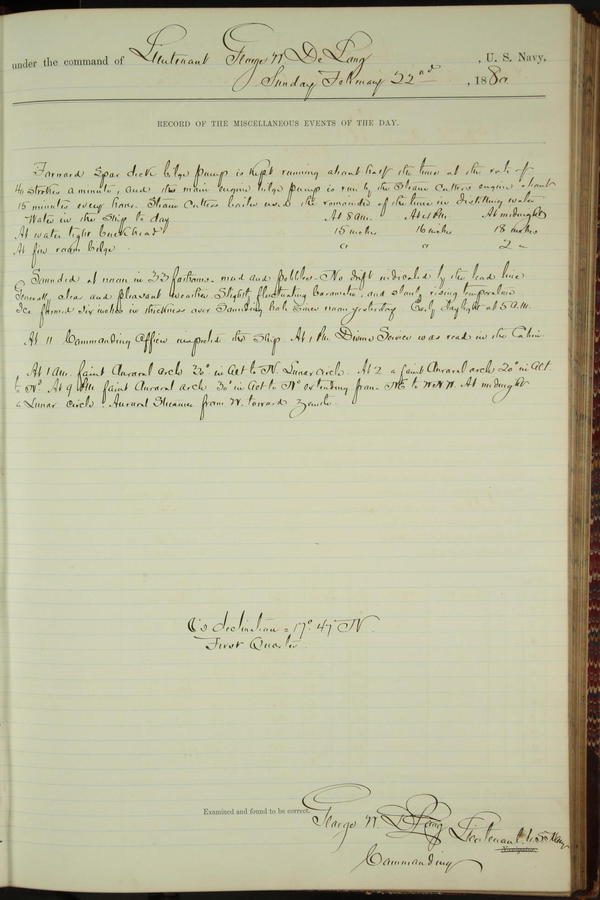 under the command of Lieutenant George W. De Long, U. S. Navy.
Sunday February 22nd, 1880
RECORD OF THE MISCELLANEOUS EVENTS OF THE DAY.
Forward Spar deck bilge pump is kept running about half the time at the rate of
40 strokes a minute, and the main engine bilge pump is run by the Steam Cutters engine about
15 minutes every hour. Steam Cutters boiler used the remainder of the time in distilling water
Water in the Ship to day At 8 a.m. At 6 P.M. At midnight
At water tight bulkhead 15 inches 16 inches 18 inches
At fire room bilge 0 " 0 " 2 "
Sounded at noon in 33 fathoms. mud and pebbles. No drift indicated by the lead line
Generally clear and pleasant weather. Slightly fluctuating barometer, and slowly rising temperature
Ice formed six inches in thickness over Sounding hole since noon yesterday Early daylight at 5 a.m.
At 11 Commanding Officer inspected the Ship. At 1 P.M. Divine Service was read in the Cabin
At 1 a.m. faint Auroral arch 22° in alt to N. Lunar Arch. At 2 a faint Auroral arch 20° in alt.
to Nd. At 9 P.M. faint Auroral arch 30° in alt to Nd extending from NE to WNW. At midnight
a Lunar circle. Auroral Streamer from W. toward zenith.
☾'s declination = 17° 47' N.
First Quarter.
Examined and found to be correct.
George W. De Long Lieutenant U. S. Navy
Navigator.
Commanding